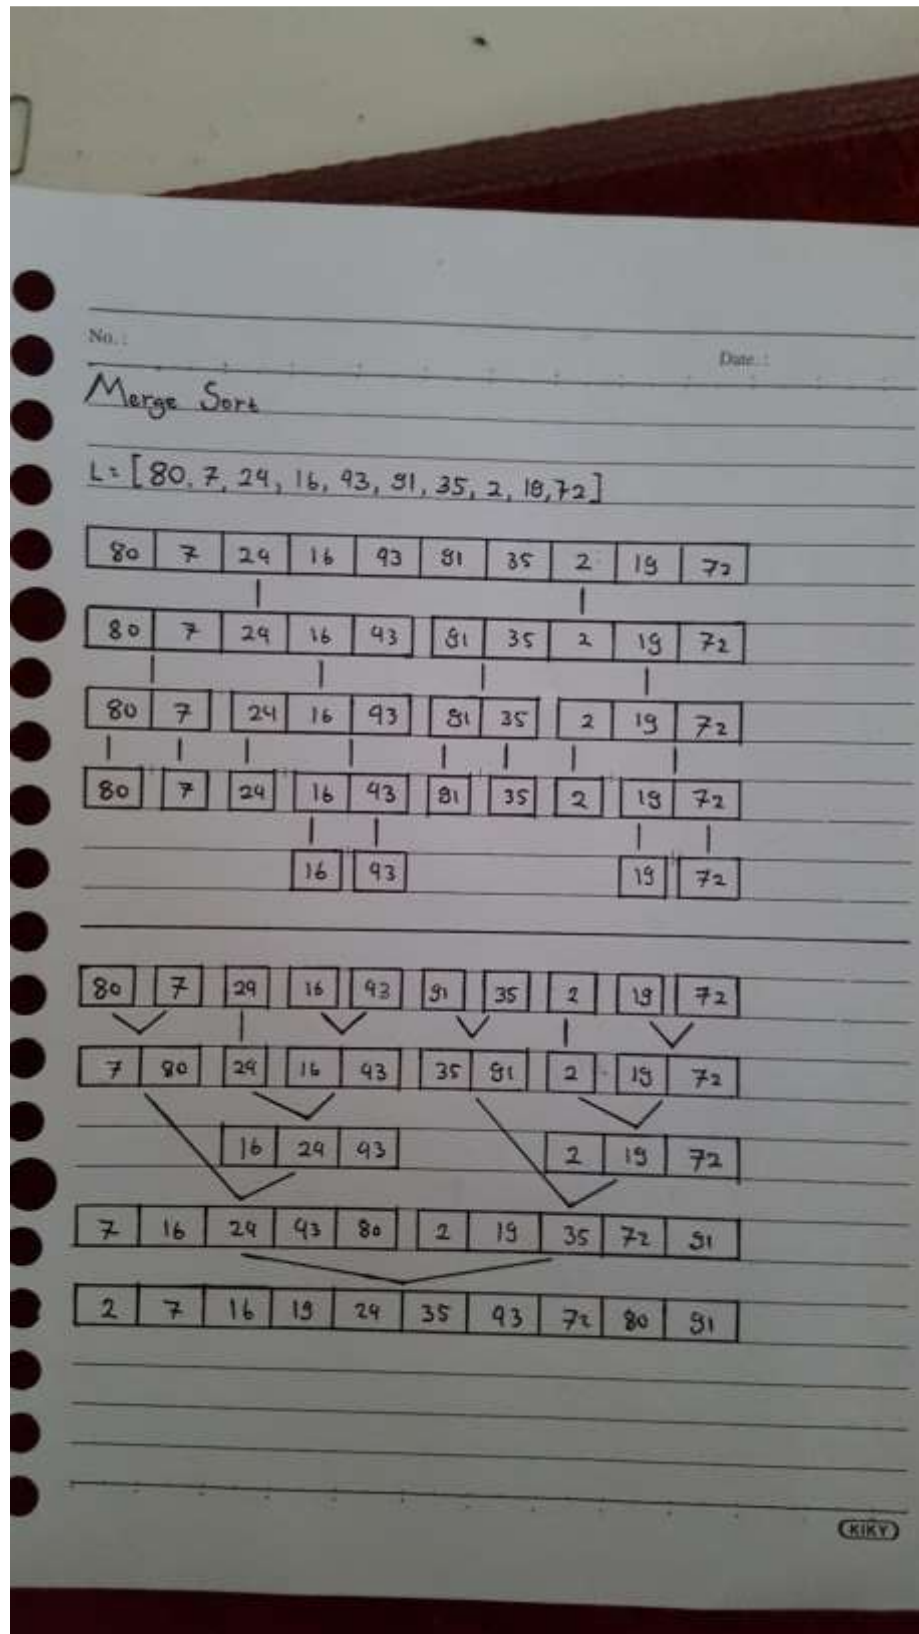 No. :
Date. :
Merge Sort
L = [80, 7, 24, 16, 43, 91, 35, 2, 19, 72]
80 7 24 16 43 91 35 2 19 72
80 7 24 16 43 91 35 2 19 72
80 7 24 16 43 91 35 2 19 72
80 7 24 16 43 91 35 2 19 72
16 43 19 72
80 7 24 16 43 91 35 2 19 72
7 80 24 16 43 35 91 2 19 72
16 24 43 2 19 72
7 16 24 43 80 2 19 35 72 91
2 7 16 19 24 35 43 72 80 91
KIKY